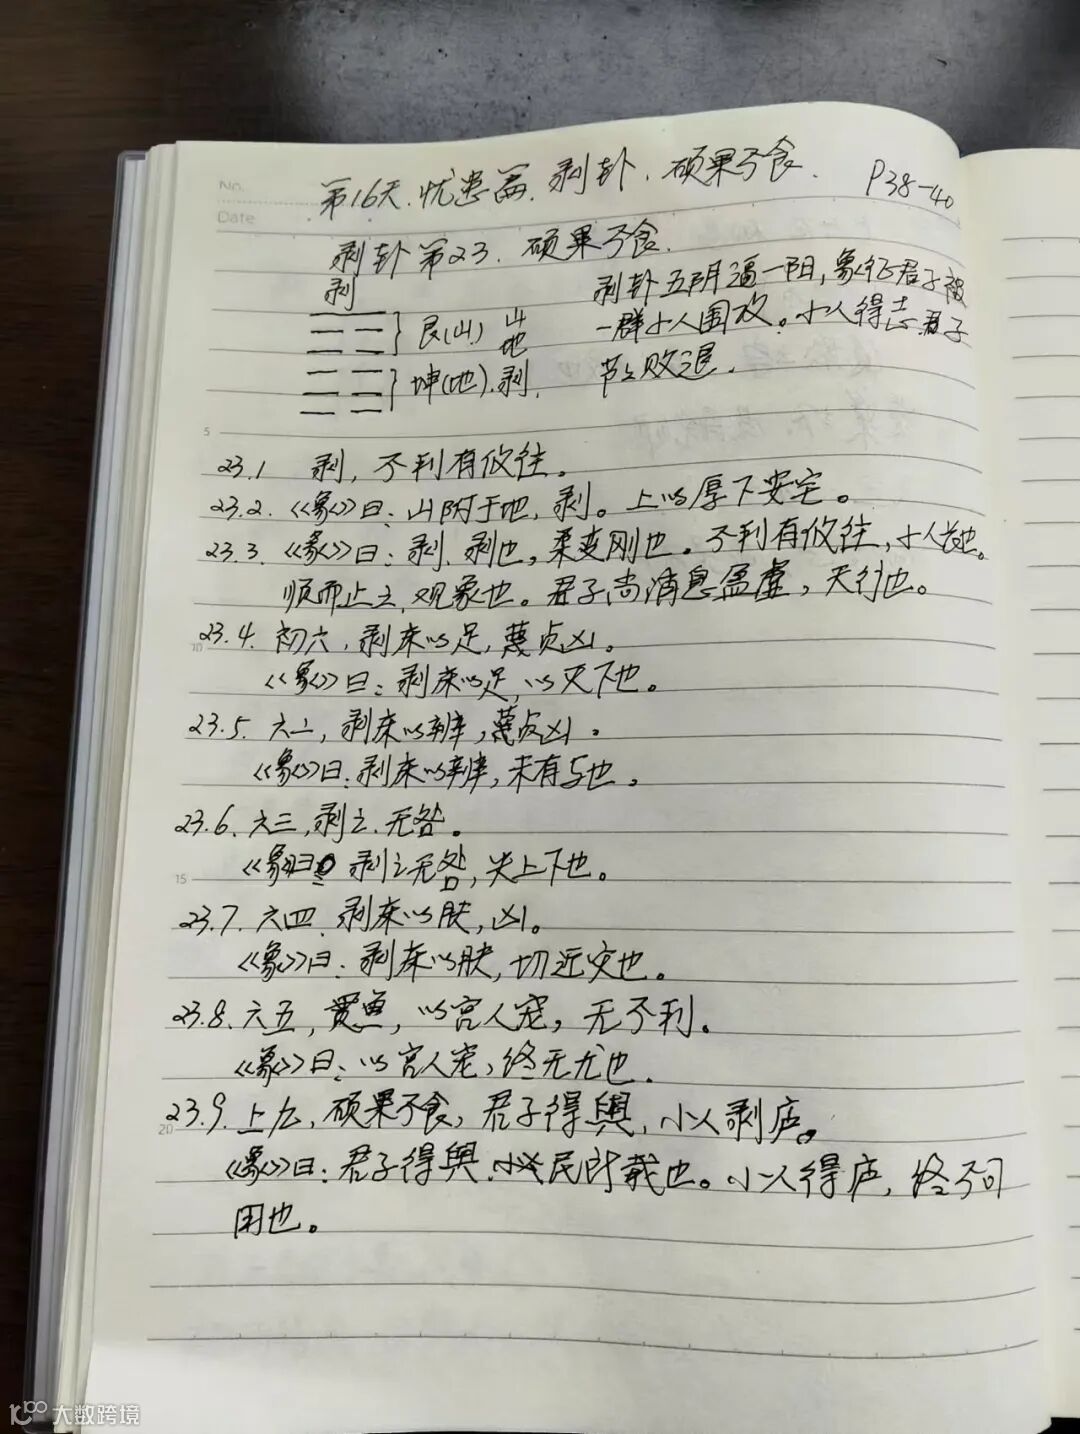 No.
第16天.忧患篇.剥卦.硕果不食. P38-40
Date
剥卦第23.硕果不食.
剥
艮(山) 山
地
坤(地).剥.
剥卦五阴逼一阳,象征君子被
一群小人围攻。小人得志君子
节节败退.
5
23.1 剥,不利有攸往。
23.2.《象》曰:山附于地,剥。上以厚下安宅。
23.3.《彖》曰:剥.剥也。柔变刚也.不利有攸往,小人长也。
顺而止之,观象也。君子尚消息盈虚,天行也。
10
23.4.初六,剥床以足,蔑贞凶。
《象》曰:剥床以足,以灭下也。
23.5.六二,剥床以辨,蔑贞凶.
《象》曰:剥床以辨,未有与也。
23.6.六三,剥之.无咎。
《象》曰 剥之无咎,失上下也。
15
23.7.六四.剥床以肤,凶。
《象》曰:剥床以肤,切近灾也。
23.8.六五,贯鱼,以宫人宠,无不利。
《象》曰:以宫人宠,终无尤也.
23.9.上九,硕果不食,君子得舆,小人剥庐。
20
《象》曰:君子得舆.民所载也。小人得庐,终不可
用也。
大数跨境